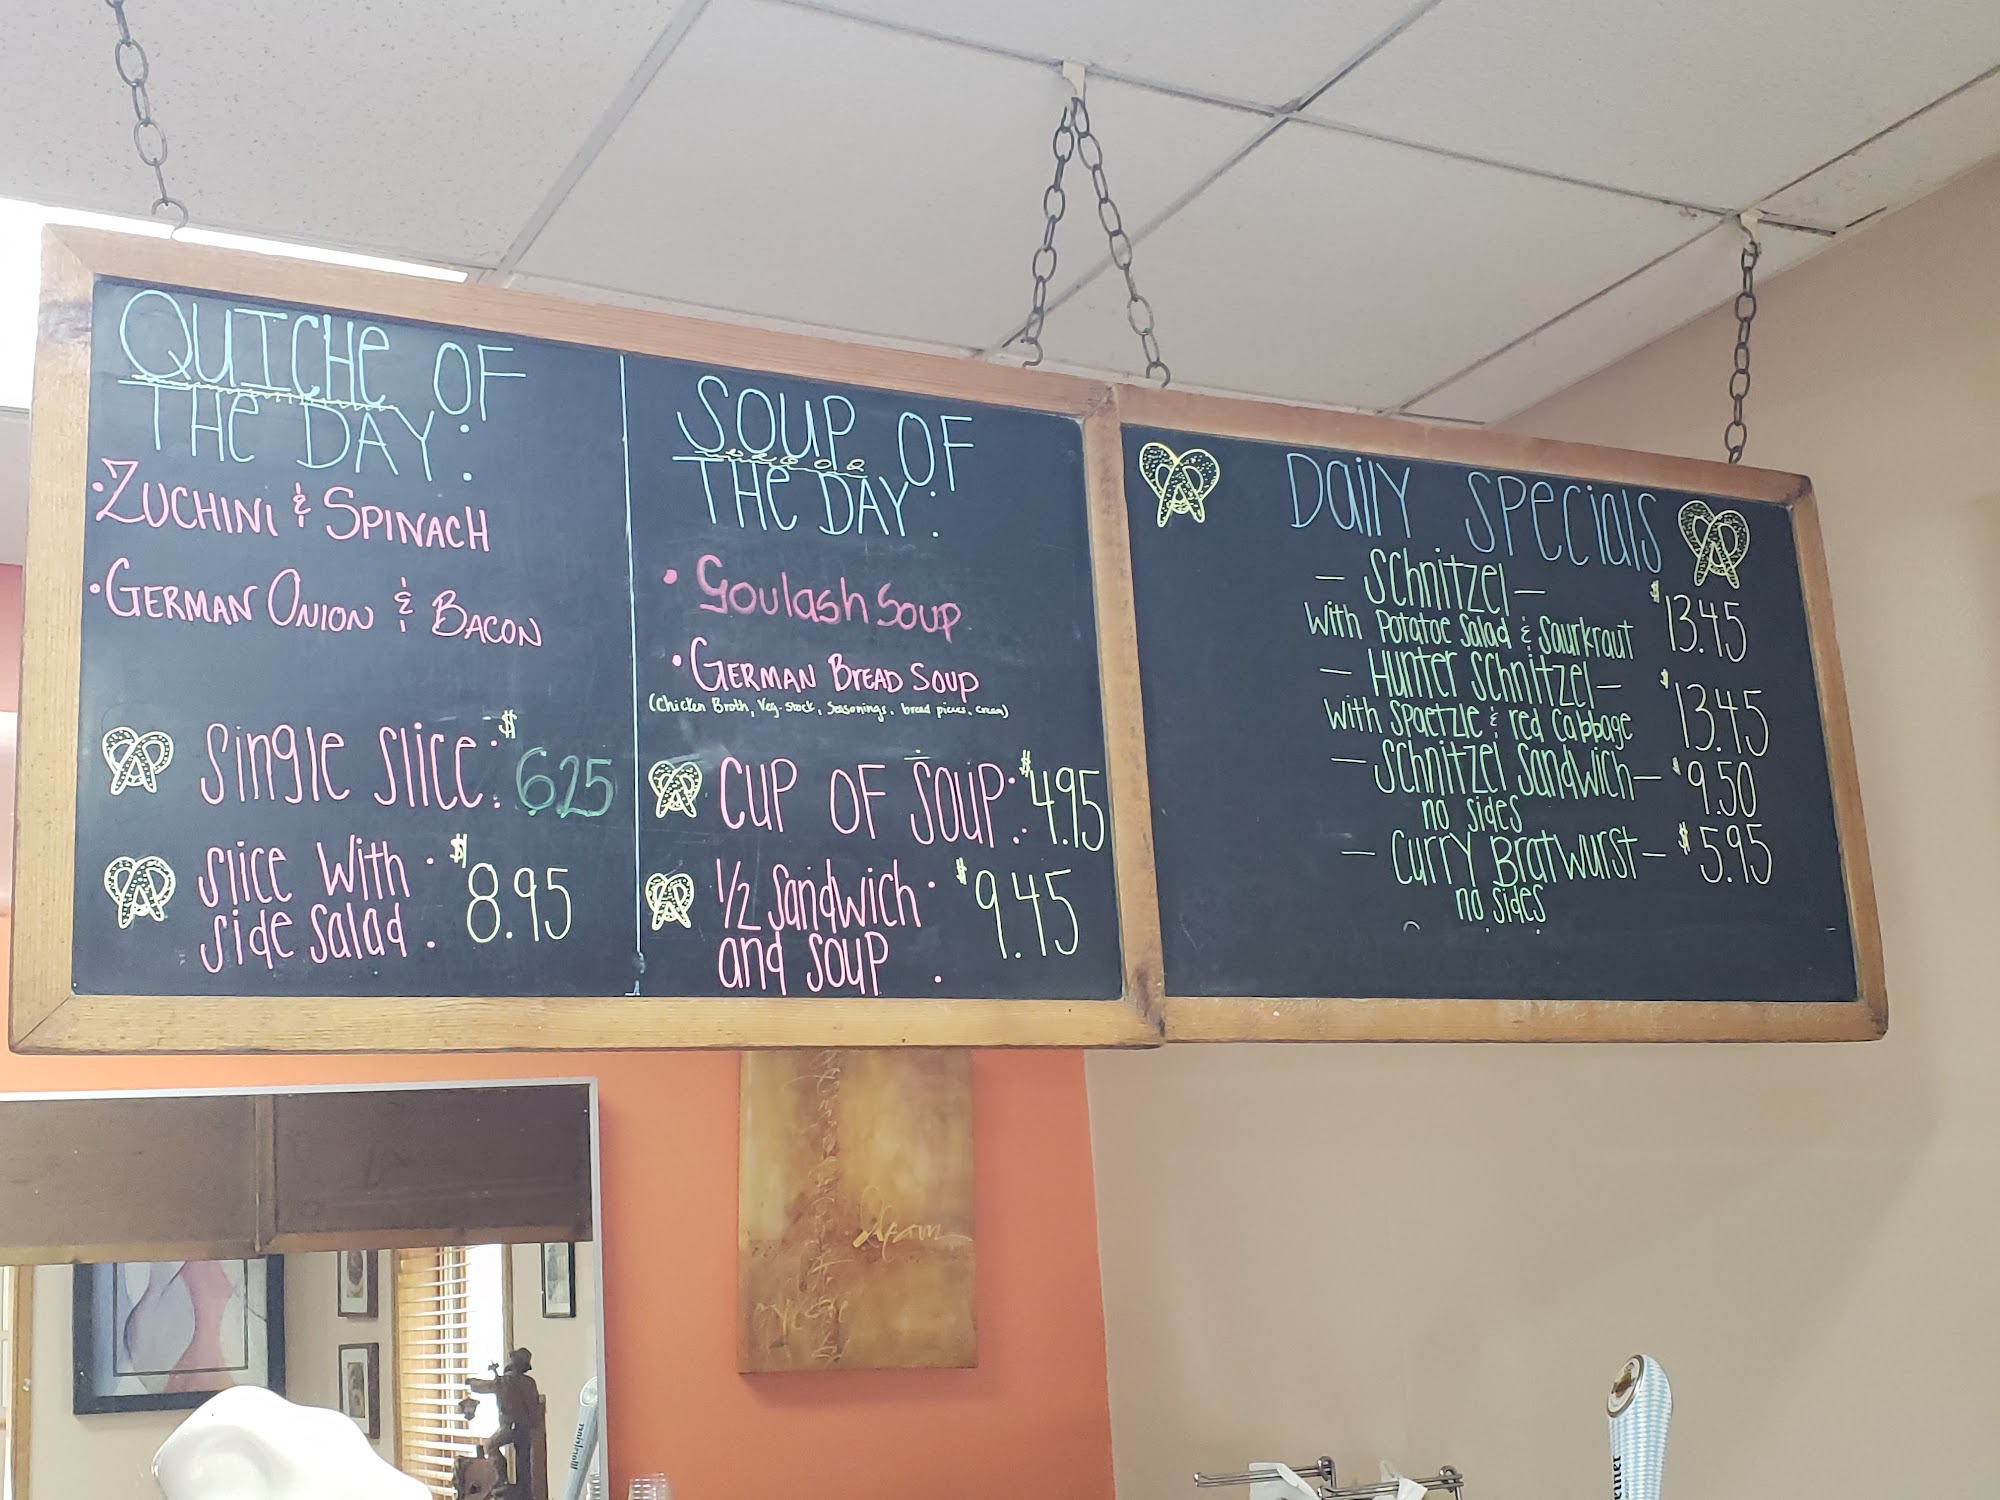 QUICHE OF
THE DAY:
• ZUCHINI & SPINACH
• GERMAN ONION & BACON
Single Slice: $ 6.25
Slice with : $ 8.95
Side Salad.
SOUP OF
THE DAY:
• Goulash Soup
• GERMAN BREAD SOUP
(Chicken Broth, Veg-stock, Seasonings, bread pieces, cream)
CUP OF SOUP: $4.95
1/2 Sandwich : $9.45
and Soup
Daily Specials
— Schnitzel — $13.45
With Potatoe Salad & Saurkraut
— Hunter Schnitzel — $13.45
With Spaetzle & red Cabbage
— Schnitzel Sandwich — $9.50
no sides
— Curry Bratwurst — $5.95
no sides